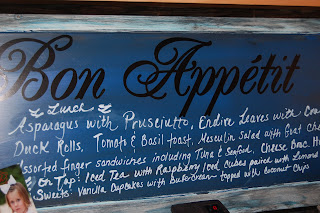 Bon Appétit
Lunch
Asparagus with Prusciutto, Endive Leaves with
Duck Rolls, Tomato & Basil toast, Mesculin Salad with Goat
Assorted finger sandwiches including Tuna & Seafood, Cheese Mac
On Tap: Iced Tea with Raspberry Iced Cubes paired with Limona
Sweets: Vanilla Cupcakes with Buttercream topped with Coconut Chips